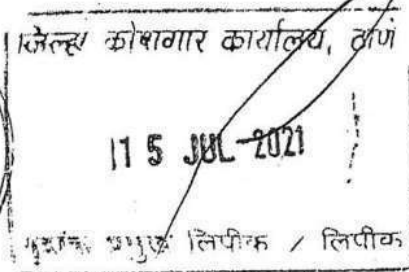 जिल्हा कोषागार कार्यालय, ठाणे
15 JUL 2021
मुद्रांक प्रमुख लिपीक / लिपीक